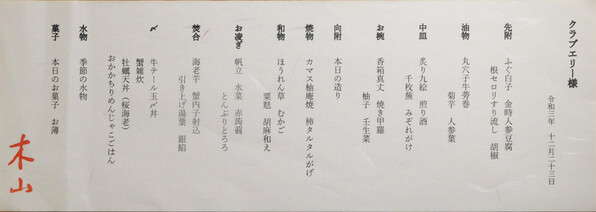 クラブエリー様
令和三年 十二月二十三日
先附 ふぐ白子 金時人参豆腐
根セロリすり流し 胡椒
油物 丸穴子牛蒡巻
菊芋 人参葉
中皿 炙り九絵 煎り酒
千枚蕪 みぞれがけ
お椀 香箱真丈 焼き甲羅
柚子 壬生菜
向附 本日の造り
焼物 カマス柚庵焼 柿タルタルがけ
和物 ほうれん草 むかご
粟麩 胡麻和え
お凌ぎ 帆立 水菜 赤蒟蒻
とんぶりとろろ
焚合 海老芋 蟹内子射込
引き上げ湯葉 銀餡
〆 牛テール玉〆丼
蟹雑炊
牡蠣天丼(桜海老)
おかかちりめんじゃこごはん
水物 季節の水物
菓子 本日のお菓子 お薄
木山